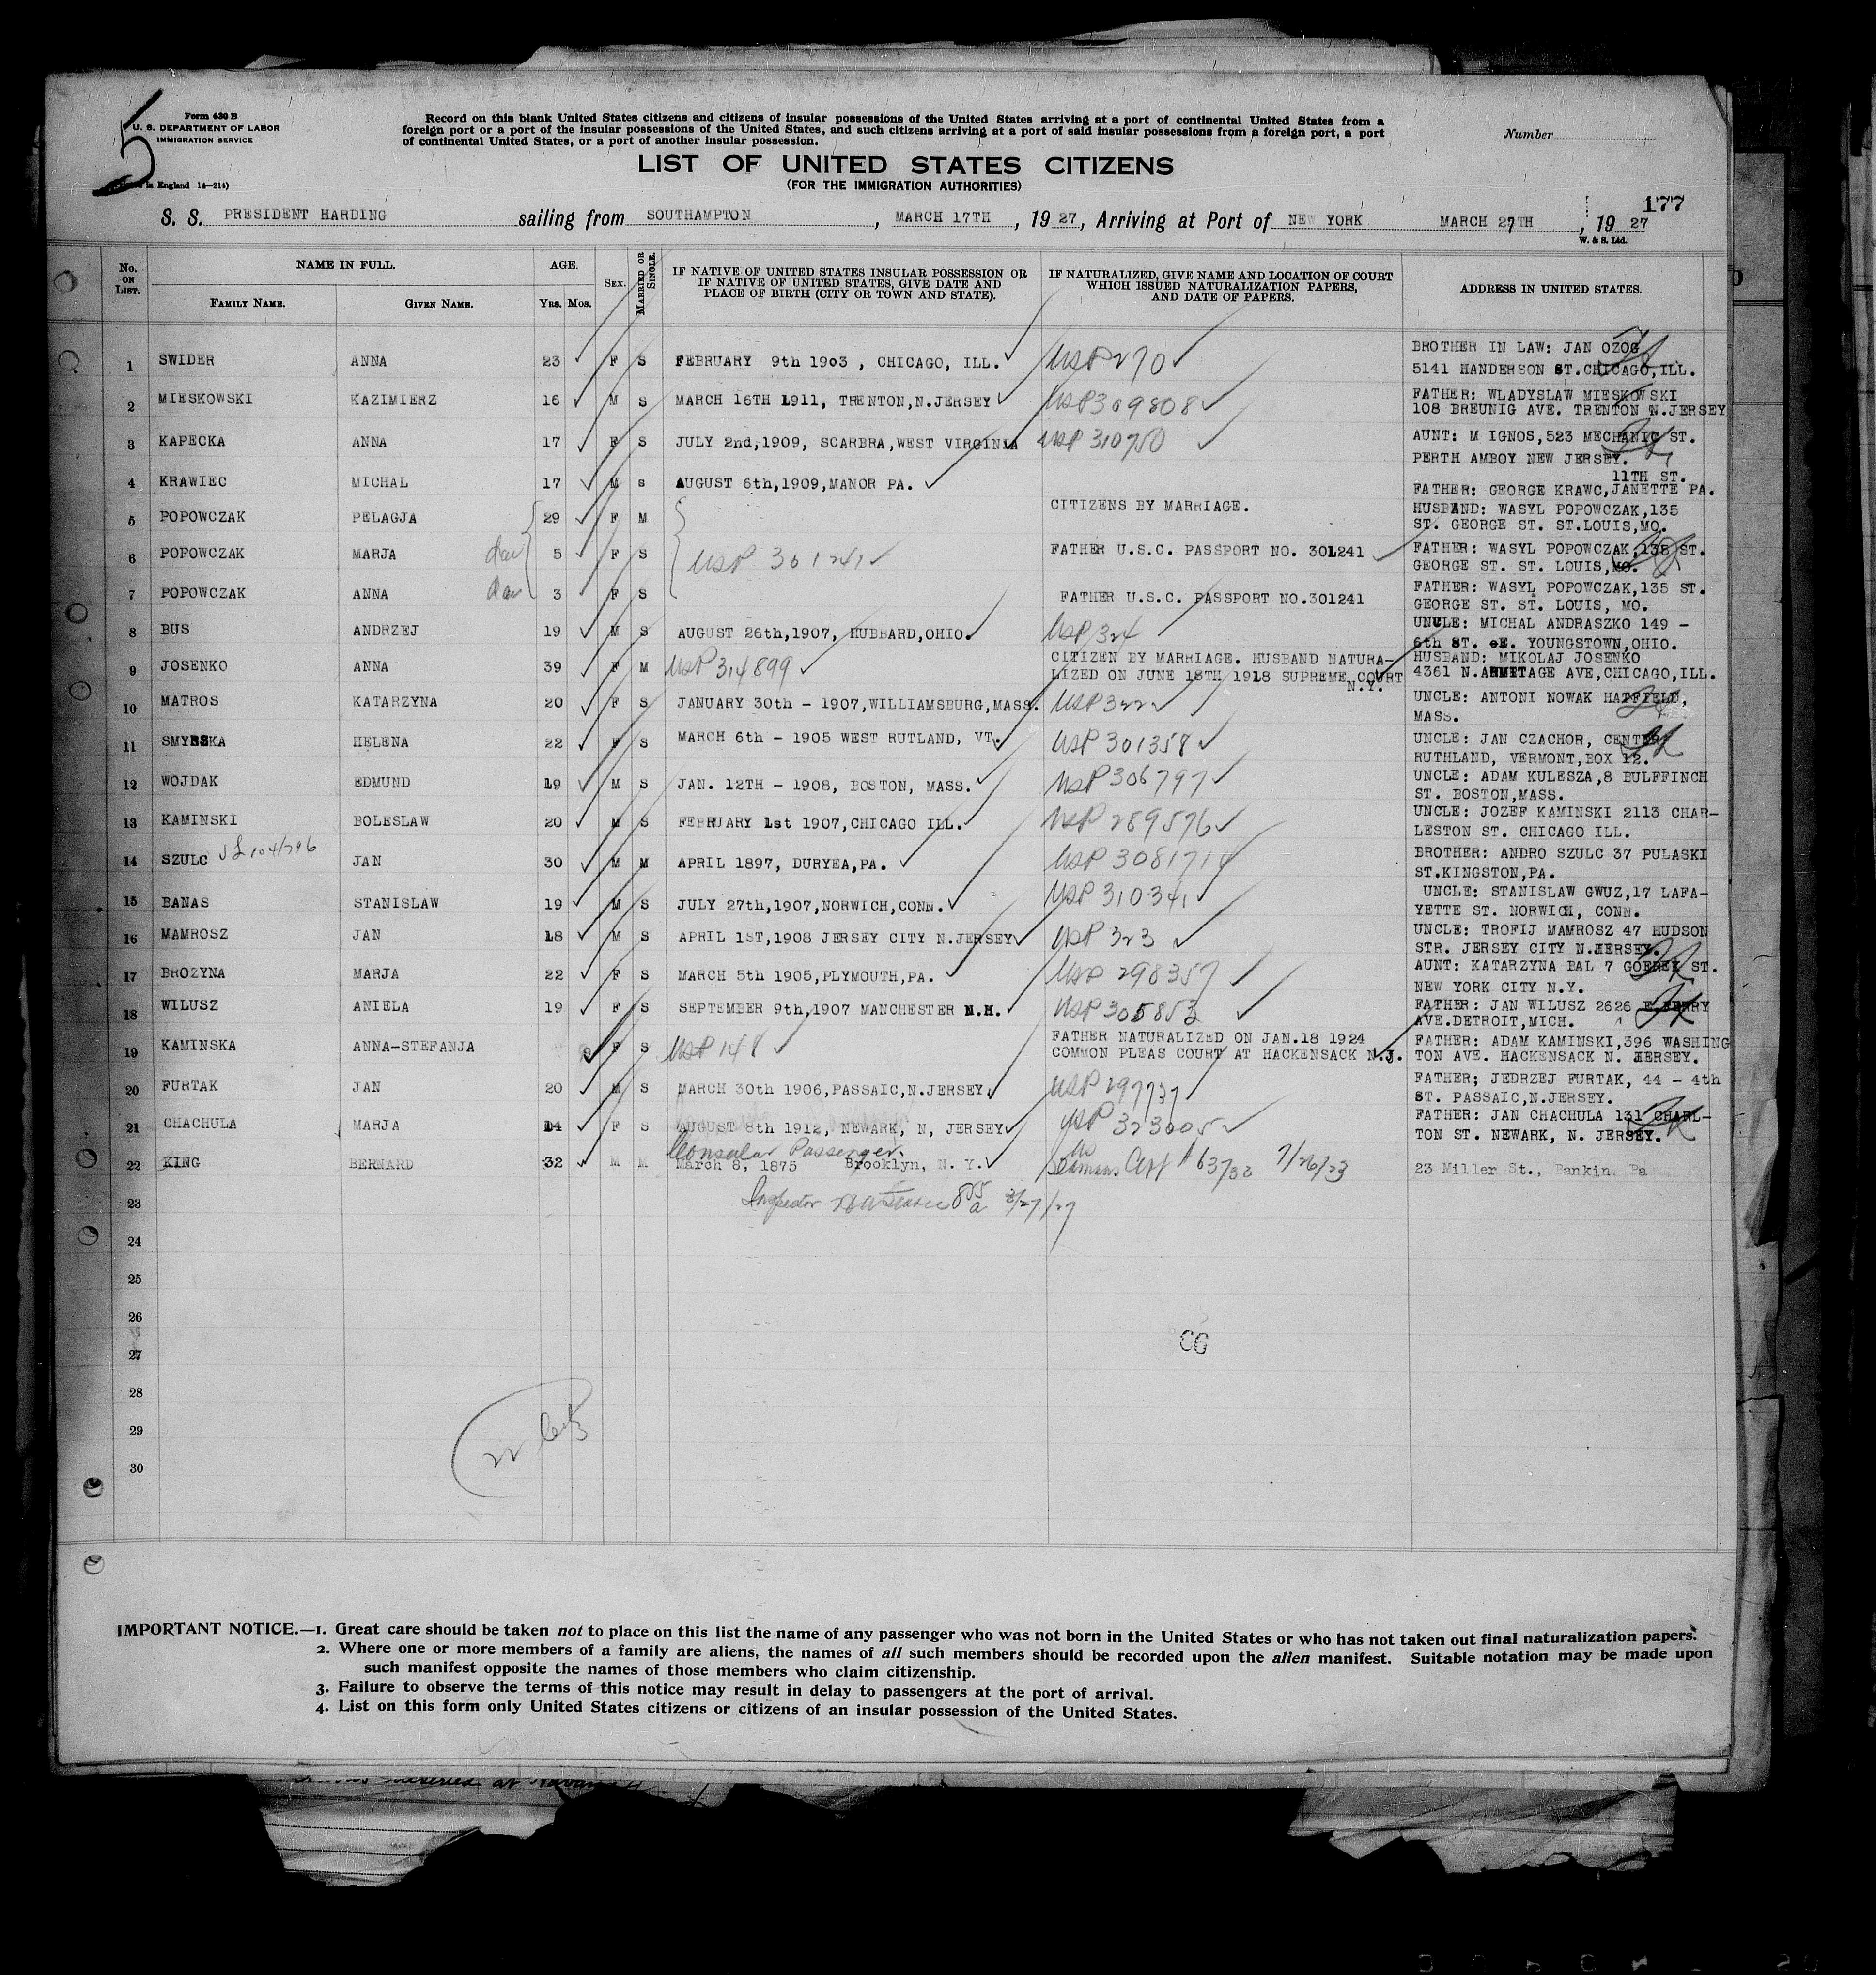 5
Form 630 B
U. S. DEPARTMENT OF LABOR
IMMIGRATION SERVICE
in England 14—214)
Record on this blank United States citizens and citizens of insular possessions of the United States arriving at a port of continental United States from a
foreign port or a port of the insular possessions of the United States, and such citizens arriving at a port of said insular possessions from a foreign port, a port
of continental United States, or a port of another insular possession.
Number
LIST OF UNITED STATES CITIZENS
(FOR THE IMMIGRATION AUTHORITIES)
177
S. S. PRESIDENT HARDING sailing from SOUTHAMPTON, MARCH 17TH, 19 27, Arriving at Port of NEW YORK MARCH 27TH, 19 27
W. & S. Ltd.
No. ON LIST. NAME IN FULL. AGE. SEX. MARRIED OR SINGLE. IF NATIVE OF UNITED STATES INSULAR POSSESSION OR IF NATIVE OF UNITED STATES, GIVE DATE AND PLACE OF BIRTH (CITY OR TOWN AND STATE). IF NATURALIZED, GIVE NAME AND LOCATION OF COURT WHICH ISSUED NATURALIZATION PAPERS, AND DATE OF PAPERS. ADDRESS IN UNITED STATES.
FAMILY NAME. GIVEN NAME. YRS. MOS.
1 SWIDER ANNA 23 F S FEBRUARY 9th 1903 , CHICAGO, ILL. USP 270 BROTHER IN LAW: JAN OZOG
5141 HANDERSON ST.CHICAGO,ILL.
2 MIESKOWSKI KAZIMIERZ 16 M S MARCH 16TH 1911, TRENTON,N.JERSEY USP 309808 FATHER: WLADYSLAW MIESKOWSKI
108 BREUNIG AVE. TRENTON N.JERSEY
3 KAPECKA ANNA 17 F S JULY 2nd,1909, SCARBRA,WEST VIRGINIA USP 310750 AUNT: M IGNOS,523 MECHANIC ST.
PERTH AMBOY NEW JERSEY.
11TH ST.
4 KRAWIEC MICHAL 17 M S AUGUST 6th,1909,MANOR PA. FATHER: GEORGE KRAWC,JANETTE PA.
5 POPOWCZAK PELAGJA 29 F M CITIZENS BY MARRIAGE. HUSBAND: WASYL POPOWCZAK,135
ST. GEORGE ST. ST.LOUIS,MO.
6 POPOWCZAK MARJA dau 5 F S USP 301241 FATHER U.S.C. PASSPORT NO. 301241 FATHER: WASYL POPOWCZAK,135 ST.
GEORGE ST. ST. LOUIS,MO.
7 POPOWCZAK ANNA dau 3 F S FATHER U.S.C. PASSPORT NO.301241 FATHER: WASYL POPOWCZAK,135 ST.
GEORGE ST. ST. LOUIS, MO.
8 BUS ANDRZEJ 19 M S AUGUST 26th,1907, HUBBARD,OHIO. USP 324 UNCLE: MICHAL ANDRASZKO 149 -
6th ST. YOUNGSTOWN,OHIO.
9 JOSENKO ANNA 39 F M USP 314899 CITIZEN BY MARRIAGE. HUSBAND NATURA-
LIZED ON JUNE 18TH 1918 SUPREME COURT
N.Y.
HUSBAND: MIKOLAJ JOSENKO
4361 N.ARMITAGE AVE,CHICAGO,ILL.
10 MATROS KATARZYNA 20 F S JANUARY 30th - 1907,WILLIAMSBURG,MASS. USP 322 UNCLE: ANTONI NOWAK HATFIELD,
MASS.
11 HELENA 22 F S MARCH 6th - 1905 WEST RUTLAND, VT. USP 301358 UNCLE: JAN CZACHOR, CENTER
RUTHLAND, VERMONT,BOX 12.
12 WOJDAK EDMUND 19 M S JAN. 12TH - 1908, BOSTON, MASS. USP 306797 UNCLE: ADAM KULESZA,8 BULFFINCH
ST. BOSTON,MASS.
13 KAMINSKI BOLESLAW 20 M S FEBRUARY 1st 1907,CHICAGO ILL. USP 289576 UNCLE: JOZEF KAMINSKI 2113 CHAR-
LESTON ST. CHICAGO ILL.
14 SZULC JAN 30 M M APRIL 1897, DURYEA,PA. USP BROTHER: ANDRO SZULC 37 PULASKI
ST.KINGSTON,PA.
15 BANAS STANISLAW 19 M S JULY 27th,1907,NORWICH,CONN. USP 310341 UNCLE: STANISLAW GWUZ,17 LAFA-
YETTE ST. NORWICH, CONN.
16 MAMROSZ JAN 18 M S APRIL 1ST,1908 JERSEY CITY N.JERSEY USP 323 UNCLE: TROFIJ MAMROSZ 47 HUDSON
STR. JERSEY CITY N.JERSEY.
17 BROZYNA MARJA 22 F S MARCH 5th 1905,PLYMOUTH,PA. USP 298357 AUNT: KATARZYNA BAL 7 ST.
NEW YORK CITY N.Y.
18 WILUSZ ANIELA 19 F S SEPTEMBER 9th,1907 MANCHESTER N.H. USP 305853 FATHER: JAN WILUSZ 2626 E.FERRY
AVE.DETROIT,MICH.
19 KAMINSKA ANNA-STEFANJA 9 F S USP 148 FATHER NATURALIZED ON JAN.18 1924
COMMON PLEAS COURT AT HACKENSACK N.J.
FATHER: ADAM KAMINSKI,396 WASHING
TON AVE. HACKENSACK N. JERSEY.
20 FURTAK JAN 20 M S MARCH 30th 1906,PASSAIC,N.JERSEY USP 297737 FATHER; JEDRZEJ FURTAK, 44 - 4th
ST. PASSAIC,N.JERSEY.
21 CHACHULA MARJA 14 F S AUGUST 8th 1912, NEWARK, N, JERSEY USP 323005 FATHER: JAN CHACHULA 131 CHARL-
TON ST. NEWARK, N. JERSEY.
Consular Passenger.
22 KING BERNARD 32 M M March 8, 1875 Brooklyn, N. Y. US Seamans Cert # 7/26/23 23 Miller St., Rankin. Pa
23 Inspector 3/27/27
24
25
26
27
28
29
30
IMPORTANT NOTICE.—1. Great care should be taken not to place on this list the name of any passenger who was not born in the United States or who has not taken out final naturalization papers.
2. Where one or more members of a family are aliens, the names of all such members should be recorded upon the alien manifest. Suitable notation may be made upon
such manifest opposite the names of those members who claim citizenship.
3. Failure to observe the terms of this notice may result in delay to passengers at the port of arrival.
4. List on this form only United States citizens or citizens of an insular possession of the United States.